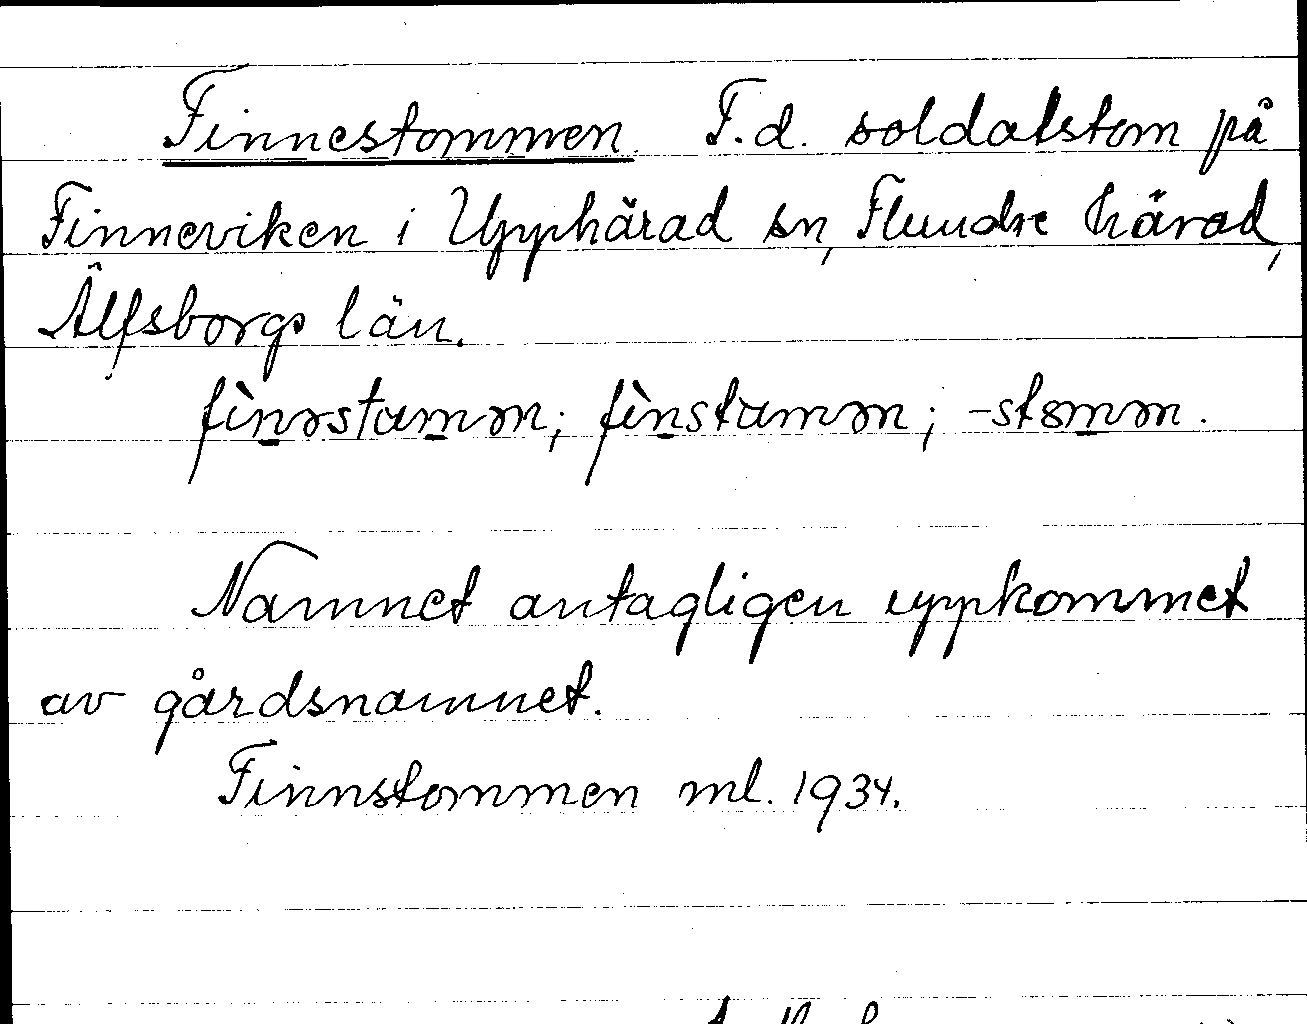 Finnestommen. F.d. soldatstom på
Finneviken i Upphärad sn, Flundre härad,
Älfsborgs län.
fìnəstamən; fìnstamən; -stomən.
Namnet antagligen uppkommet
av gårdsnamnet.
Finnstommen ml. 1934.